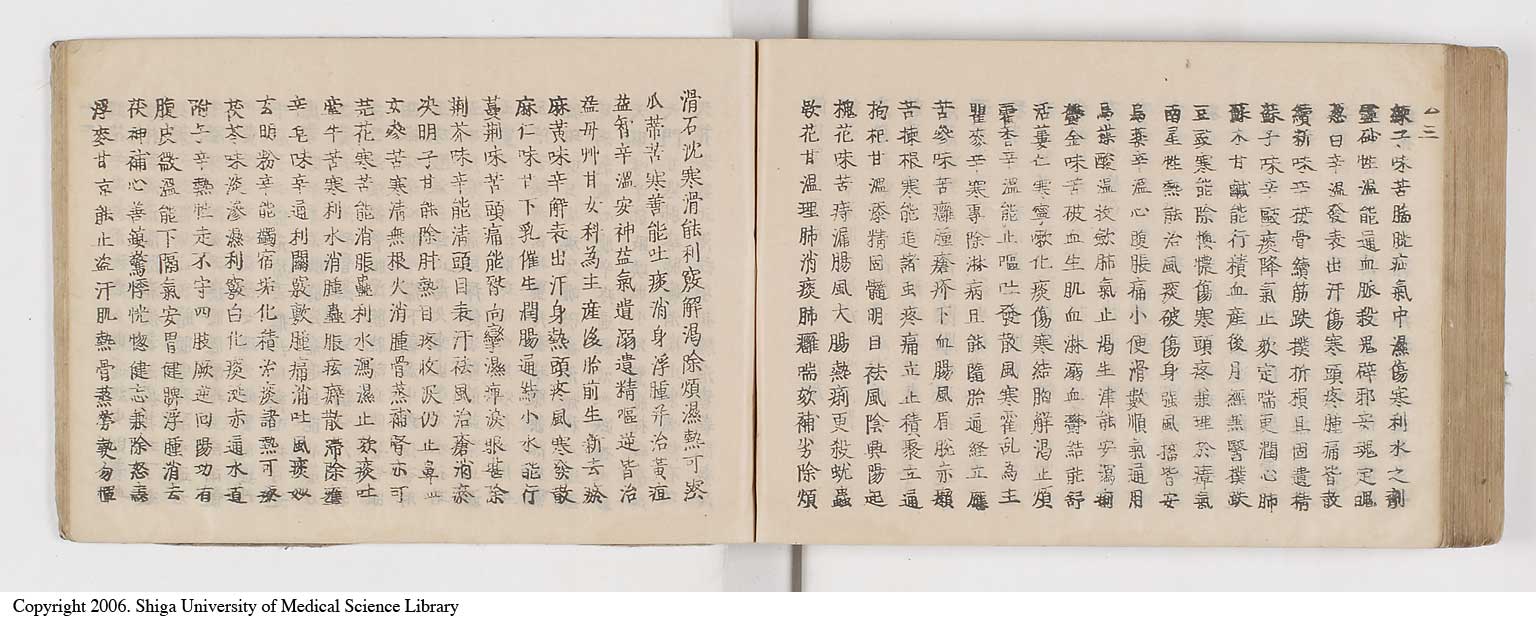 練子味苦腦胱疝氣中濕傷寒利水之劑
靈砂性温能通血脈殺鬼碎邪安魂定魄
葱白辛温發表出汗傷寒頭疼腫痛皆散
續斷味辛接骨續筋跌撲折損且固遺精
蘇子味辛毆痰降氣止欬定喘更潤心肺
蘇木甘鹹能行積血産後月經無醫撲跌
豆豉寒能除懊憹傷寒頭疼兼理於瘴氣
南星性熱能治風痰破傷身強風搐皆安
烏藥辛温心腹脹痛小便滑數順氣通用
烏梅酸温收歛肺氣止渇生津能安瀉痢
鬱金味苦破血生肌血淋溺血鬱結能舒
活蔞仁寒寧嗽化痰傷寒結胸解渇止煩
藿香辛温能止嘔吐發散風寒霍乱為主
瞿麥辛寒專除淋病且能墮胎通経立應
苦參味苦癰腫瘡疥下血腸風眉脫赤癩
苦楝根寒能追諸虫疼痛立止積聚立通
拘杞甘温添精固髓明目祛風陰興陽起
槐花味苦痔漏腸風大腸熱痢更殺蚘蟲
欵花甘温理肺消痰肺癰喘欬補劣除煩
滑石沈寒滑能利竅解渇除煩濕熱可療
瓜蒂苦寒善能吐痰消身浮腫并治黄疸
益智辛温安神益氣遺溺遺精嘔逆皆治
益母艸甘女科為主産後胎前生新去瘀
麻黄味辛解表出汗身熱頭疼風寒發散
麻仁味甘下乳催生潤腸通結小水能行
蔓荆味苦頭痛能醫向攣濕痺淚眼甚除
荆芥味辛能清頭目表汗祛風治瘡消瘀
决明子甘能除肝熱目疼收淚仍止鼻
玄參苦寒清無根火消腫骨蒸補腎亦可
芫花寒苦能消脹蠱利水瀉濕止欬痰吐
牽牛苦寒利水消腫蠱脹痃癖散滯除壅
辛皂味辛通利關竅敷腫痛消吐風痰妙
玄明粉辛能蠲宿垢化積治痰諸熱可療
茯苓味淡滲濕利竅白化痰涎赤通水道
附子辛熱性走不守四肢厥逆回陽功有
腹皮微温能下隔氣安胃健脾浮腫消去
茯神補心善鎮驚悸恍惚健忘兼除怒恚
浮麥甘凉能止盗汗肌熱骨蒸勞熱勿憚